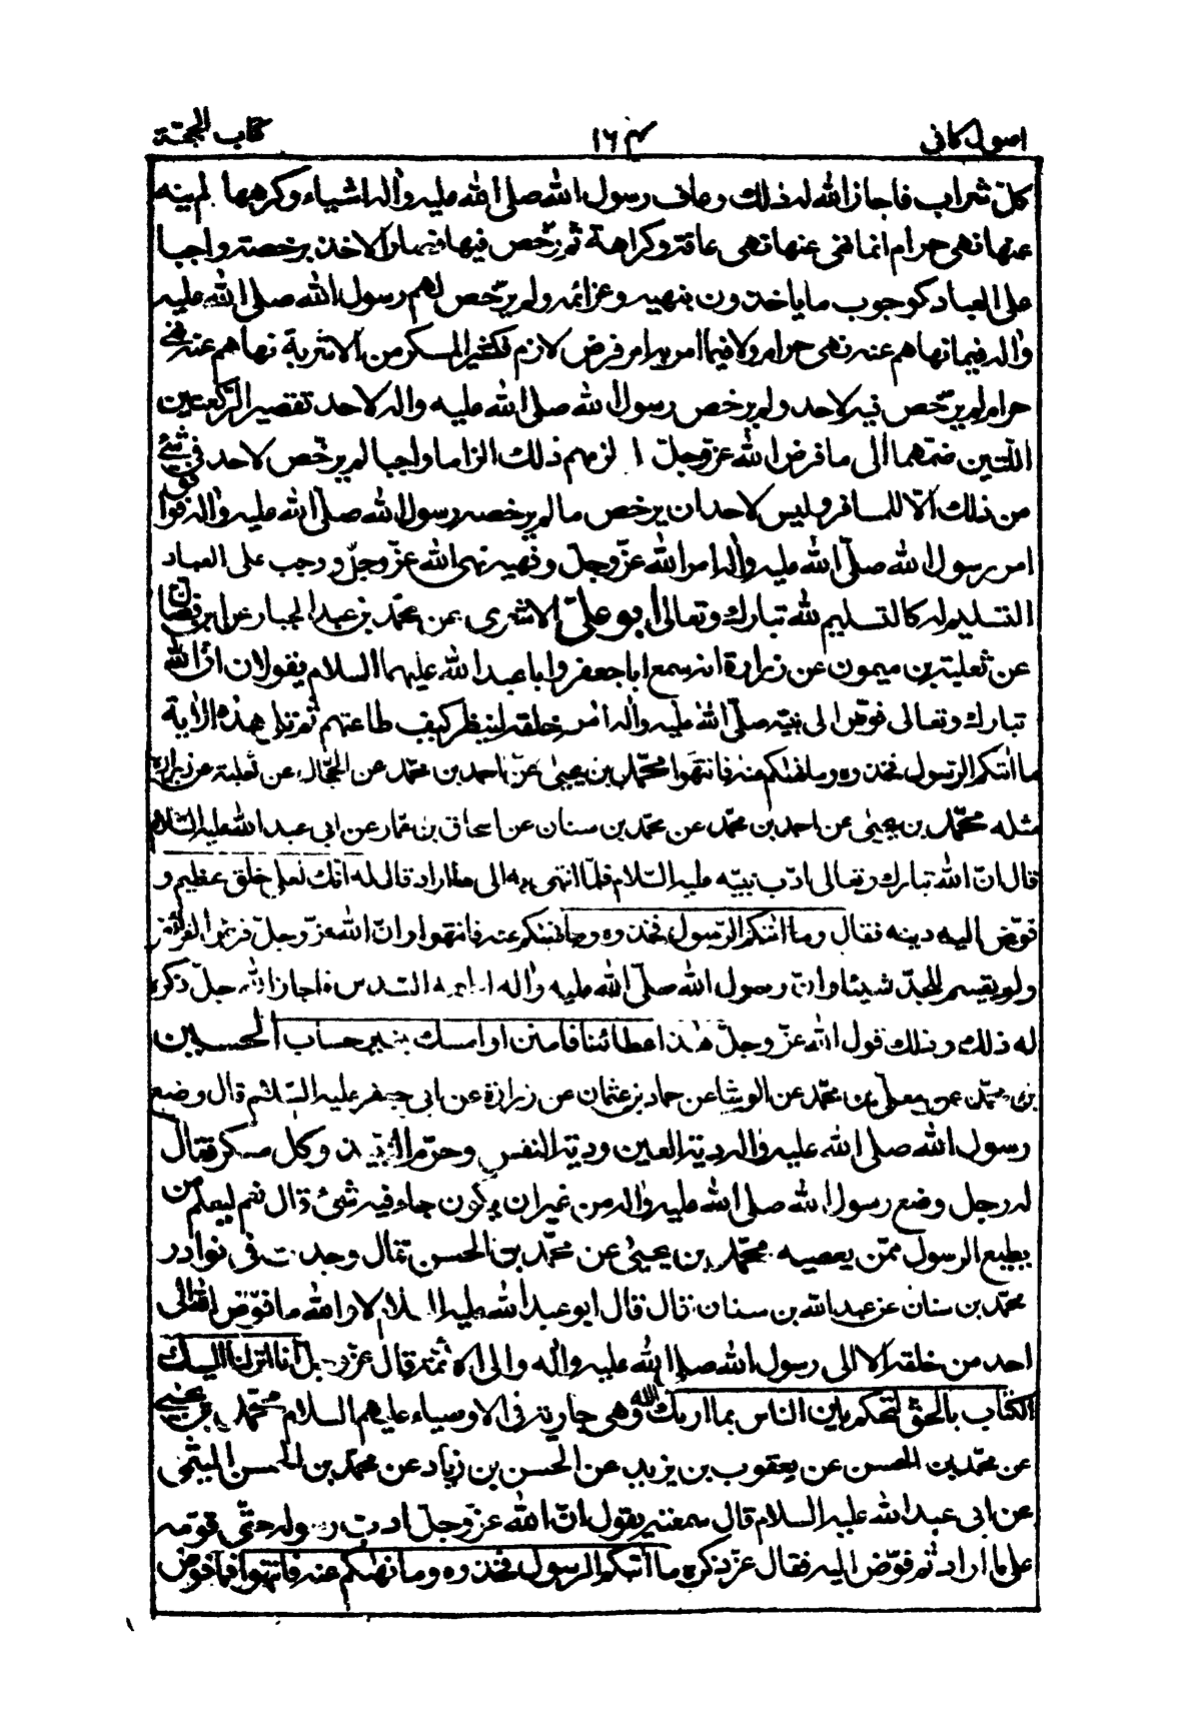 اصول كافى ١٦٤ كتاب الحجة
كلّ شراب فاجاز الله له ذلك وعاف رسول الله صلى الله عليه واله اشياء وكرهها لم ينه
عنها نهى حرام انما نهى عنها نهى عافة وكراهة ثم رخّص فيها فصار الاخذ برخصته واجبا
على العباد كوجوب ما ياخذون بنهيه وعزائمه ولم يرخّص لهم رسول الله صلى الله عليه
واله فيما نهاهم عنه نهى حرام ولا فيما امر به امر فرض لازم فكثير المسكر من الاشربة نهاهم عنه نهى
حرام لم يرخّص فيه لاحد ولم يرخص رسول الله صلى الله عليه واله لاحد تقصير الركعتين
اللتين ضمّهما الى ما فرض الله عزّ وجلّ الزمهم ذلك الزاما واجبا لم يرخّص لاحد فى شئ
من ذلك الّا للمسافر وليس لاحد ان يرخص ما لم يرخصه رسول الله صلّى الله عليه واله فوافق
امر رسول الله صلّى الله عليه واله امر الله عزّ وجلّ ونهيه نهى الله عزّ وجلّ ووجب على العباد
التسليم له كالتسليم لله تبارك وتعالى ابو علىّ الاشعرى عن محمّد بن عبد الجبار عن ابن فضال
عن ثعلبة بن ميمون عن زرارة انه سمع ابا جعفر وابا عبد الله عليهما السلام يقولان انّ الله
تبارك وتعالى فوّض الى نبيّه صلّى الله عليه واله امر خلقه لينظر كيف طاعتهم ثم تلا هذه الاية
ما اتٰكم الرسول فخذوه وما نهٰكم عنه فانتهوا محمّد بن يحيىٰ عن احمد بن محمّد عن الحجّال عن ثعلبة عن زرارة
مثله محمّد بن يحيىٰ عن احمد بن محمّد عن محمّد بن سنان عن اسحاق بن عمّار عن ابى عبد الله عليه السّلام
قال انّ الله تبارك وتعالى ادّب نبيّه عليه السّلام فلمّا انتهى به الى ما اراد قال له انّك لعلى خلق عظيم و
فوّض اليه دينه فقال وما اتٰكم الرّسول فخذوه وما نهٰكم عنه فانتهوا وانّ الله عزّ وجلّ فرض الفرائض
ولم يقسم للجدّ شيئا وانّ رسول الله صلّى الله عليه واله اطعمه السّدس فاجاز الله جلّ ذكره
له ذلك وذلك قول الله عزّ وجلّ هٰذا عطائنا فامنن او امسك بغير حساب الحسين
بن محمّد عن معلى بن محمّد عن الوشا عن حماد بن عثمان عن زرارة عن ابى جعفر عليه السّلام قال وضع
رسول الله صلى الله عليه واله دية العين ودية النفس وحرّم النبيذ وكل مسكر فقال
له رجل وضع رسول الله صلى الله عليه واله من غير ان يكون جاء فيه شئ قال نعم ليعلم من
يطيع الرسول ممّن يعصيه محمّد بن يحيىٰ عن محمّد بن الحسن قال وجدت فى نوادر
محمّد بن سنان عن عبد الله بن سنان قال قال ابو عبد الله عليه السلام لا والله ما فوّض الله الى
احد من خلقه الا الى رسول الله صلى الله عليه واله والى الائمة قال عزّ وجلّ انا انزلنا اليك
الكتاب بالحقّ لتحكم بين الناس بما اريك الله وهى جارية فى الاوصياء عليهم السلام محمّد بن يحيىٰ
عن محمّد بن الحسن عن يعقوب بن يزيد عن الحسن بن زياد عن محمّد بن الحسن الميثمى
عن ابى عبد الله عليه السلام قال سمعته يقول انّ الله عزّ وجلّ ادب رسوله حتّى قوّمه
على ما اراد ثم فوّض اليه فقال عزّ ذكره ما اتٰكم الرسول فخذوه وما نهٰكم عنه فانتهوا فما فوض